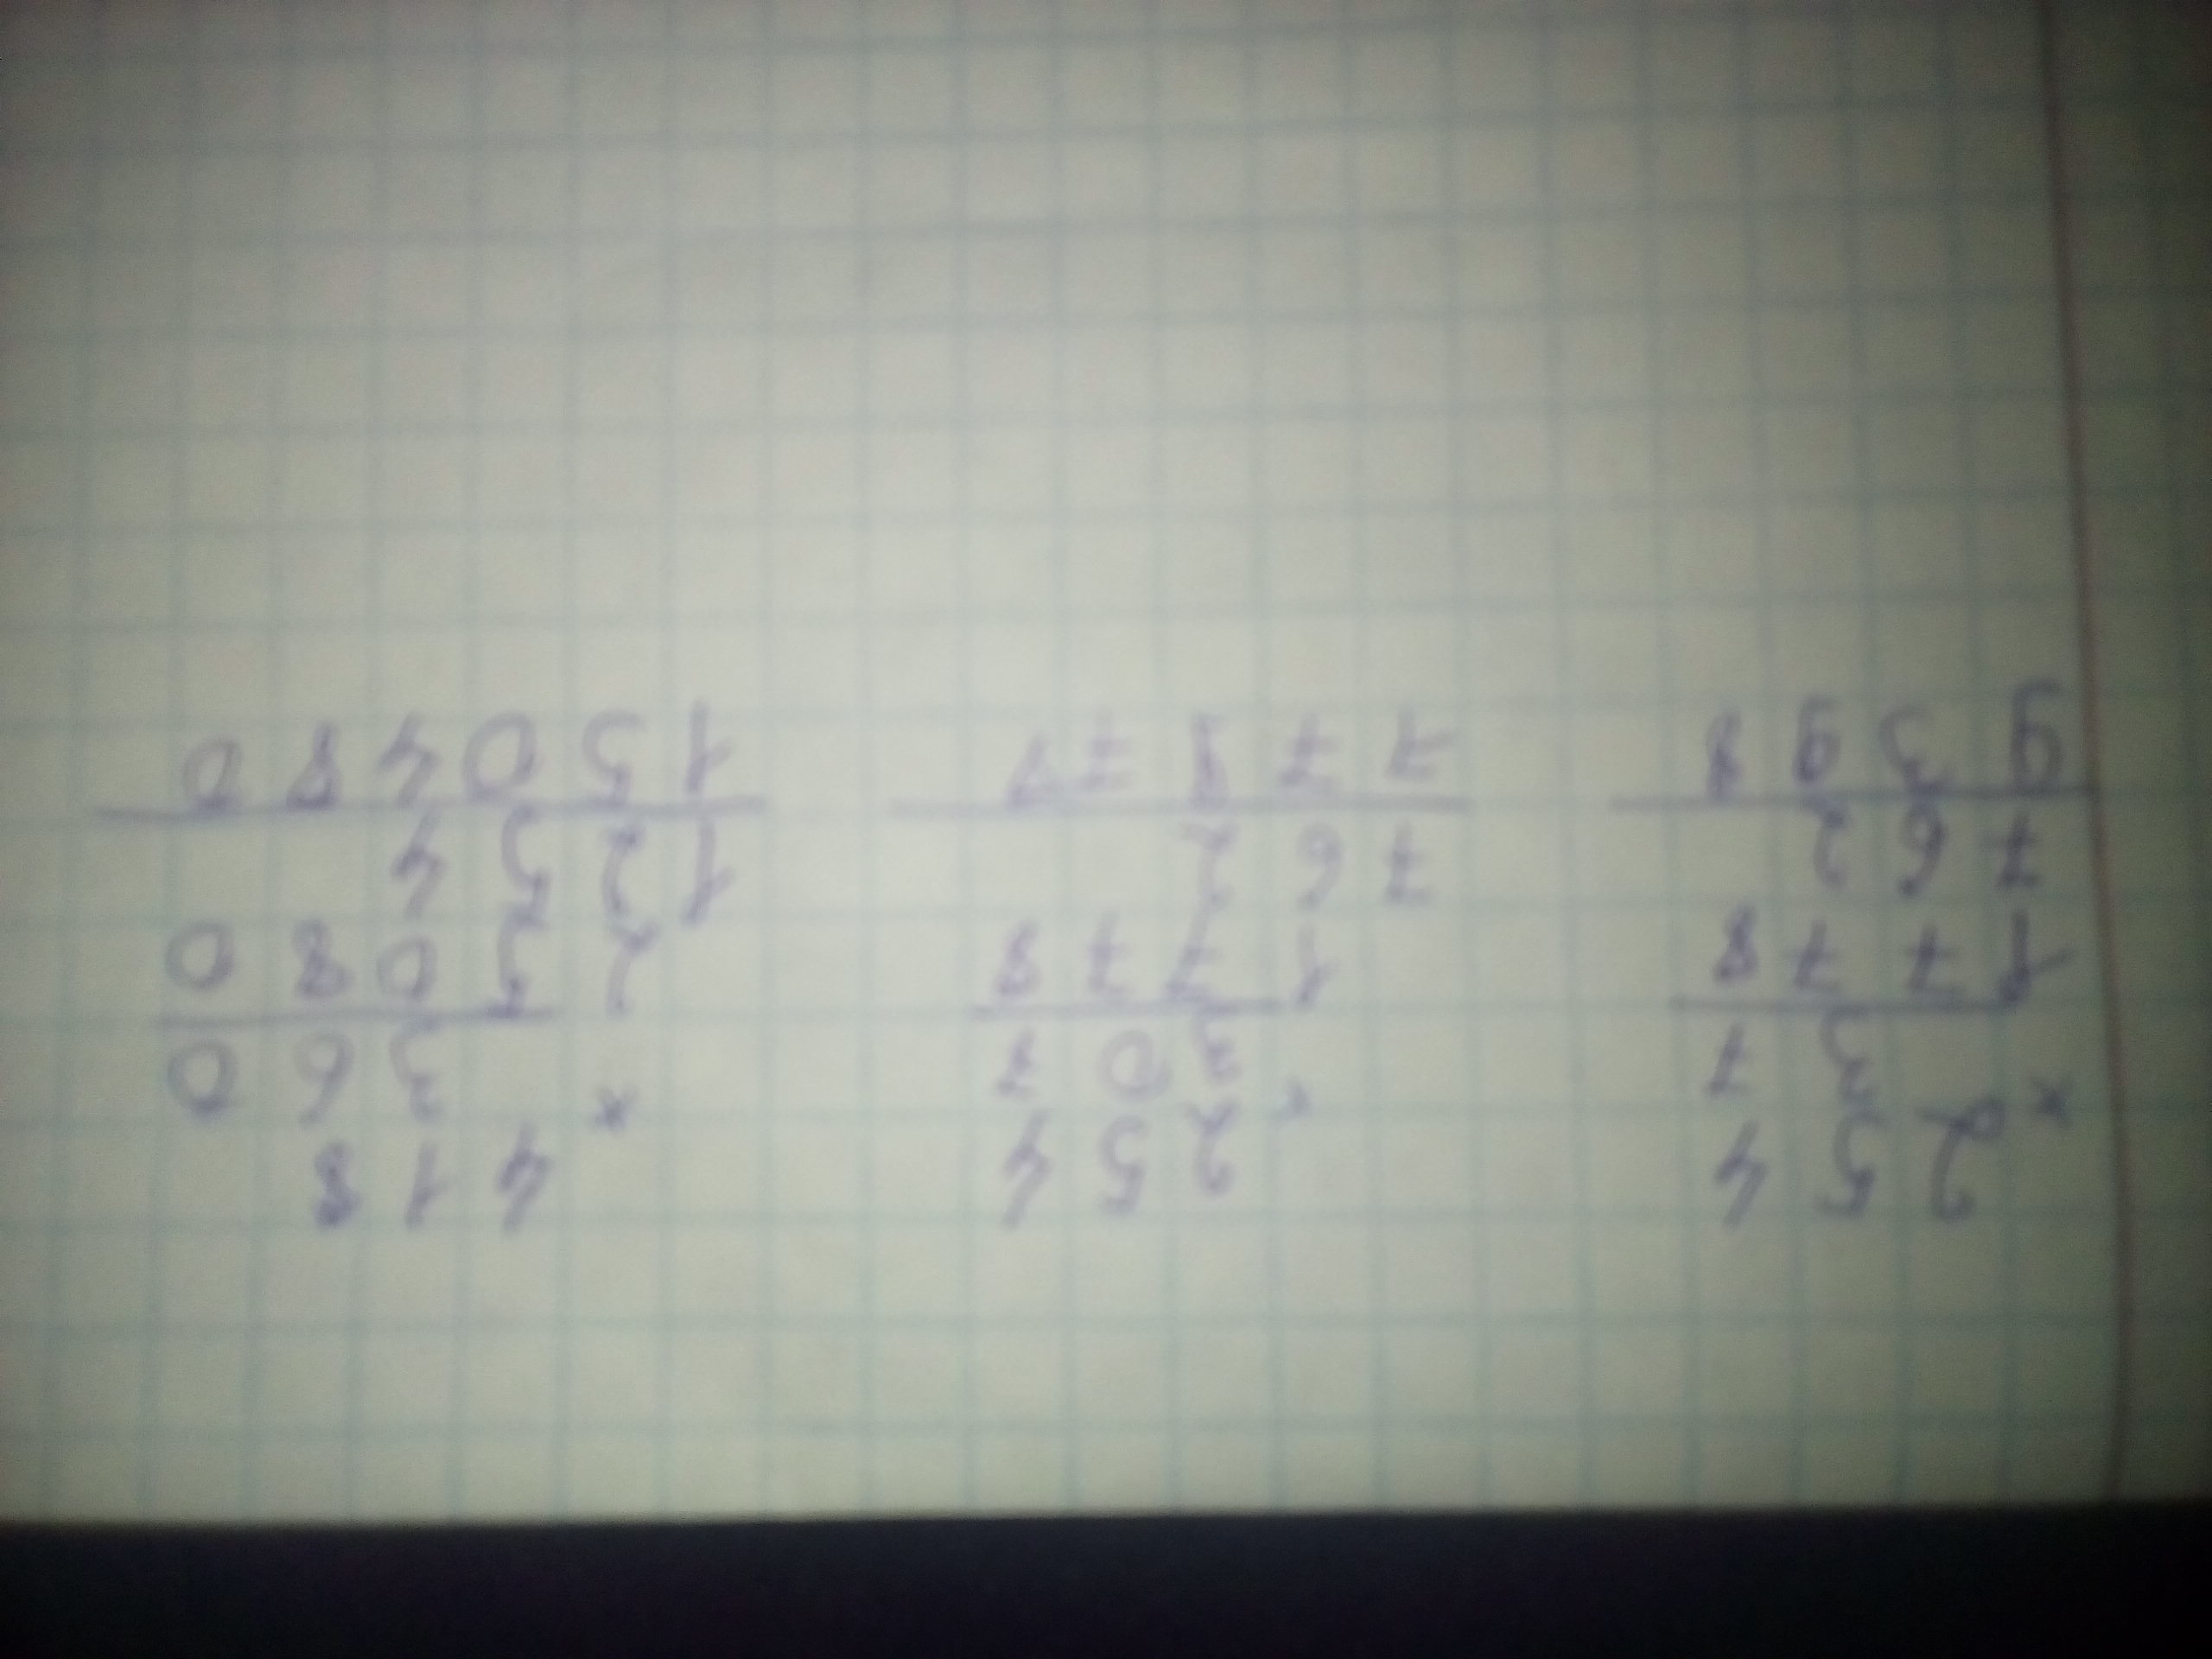 × 254
37
1778
762
9398
× 254
307
1778
762
77978
× 418
360
25080
1254
150480